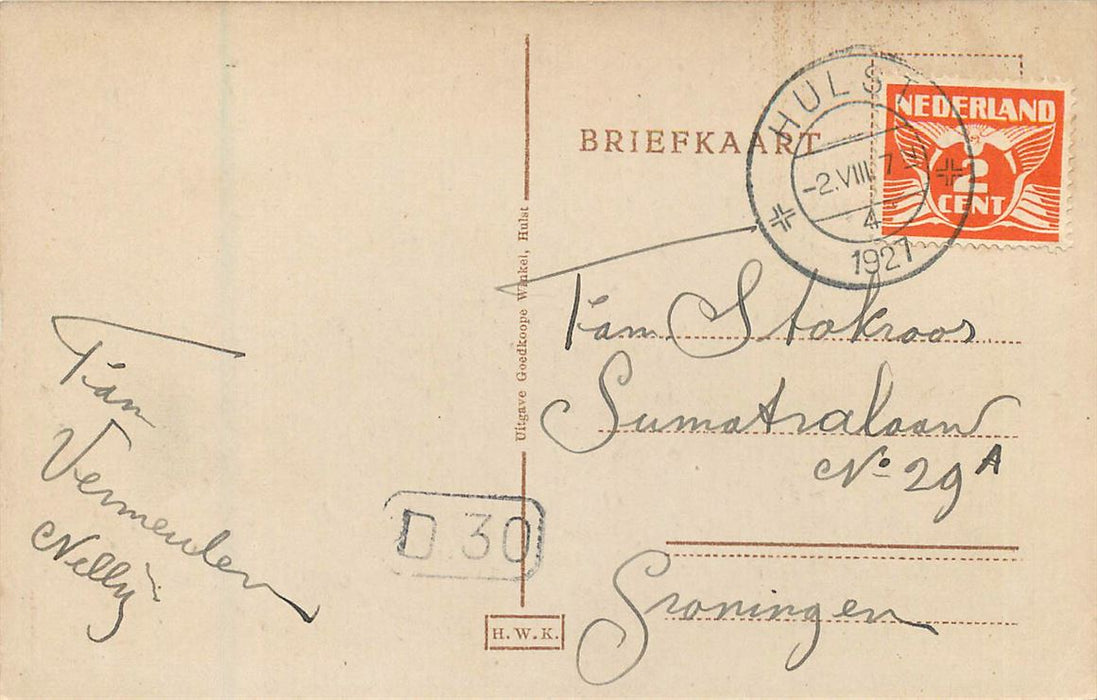 BRIEFKAART
HULST
-2.VIII. 7
4
1927
NEDERLAND
2
CENT
Uitgave Goedkoope Winkel, Hulst
Fam Stokroos
Sumatralaan
No 29A
Groningen
Fam
Vermeulen
Nelly
D 30
H.W.K.